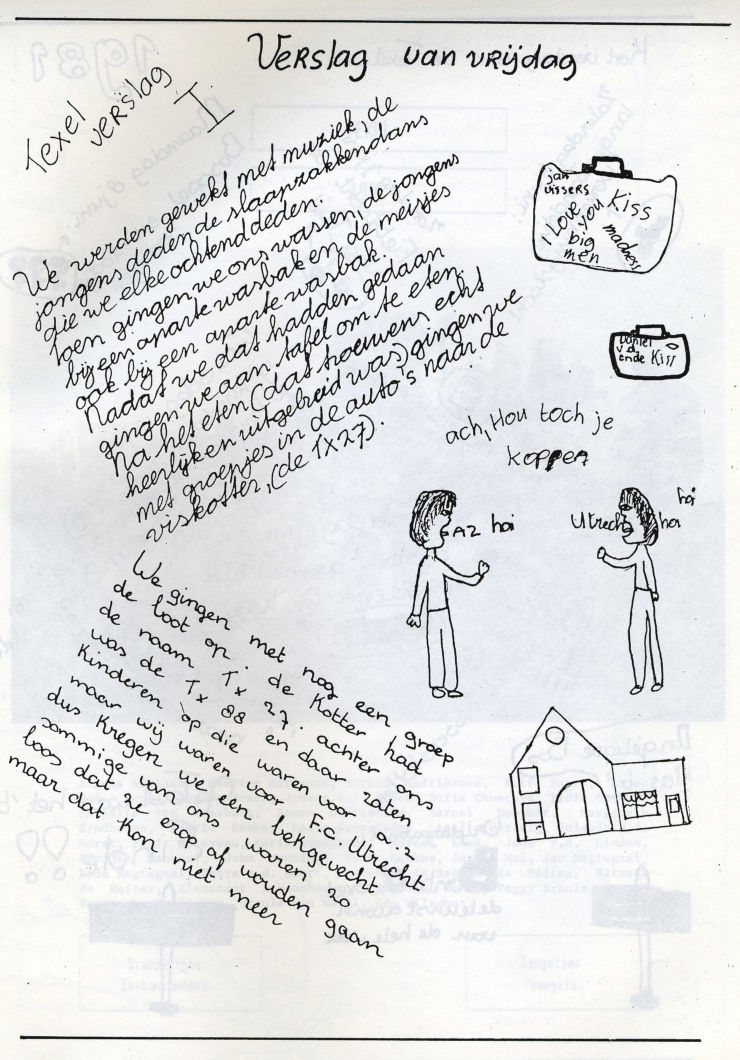 Verslag van vrijdag
Texel
verslag
I
We werden gewekt met muziek, de
jongens deden de slaapzakkendans
die we elke ochtend deden.
Toen gingen we ons wassen, de jongens
bij een aparte wasbak en de meisjes
ook bij een aparte wasbak.
Nadat we dat hadden gedaan
gingen we aan tafel om te eten.
Na het eten (dat trouwens echt
heerlijk en uitgebreid was) gingen we
met groepjes in de auto's naar de
viskotter, (de Tx27).
jan
vissers
Kiss
I Love
you
big
men
madness
Daniel
v.d.
ende Kiss
ach, Hou toch je
koppen
AZ hoi
Utrecht
hoi
hoi
We gingen met nog een groep
de boot op. de Kotter had
de naam Tx 27. achter ons
was de Tx 88 en daar zaten
Kinderen op die waren voor A.Z
maar wij waren voor F.C. Utrecht.
dus Kregen we een bekgevecht.
sommige van ons waren zo
boos dat ze erop af wouden gaan
maar dat Kon niet meer